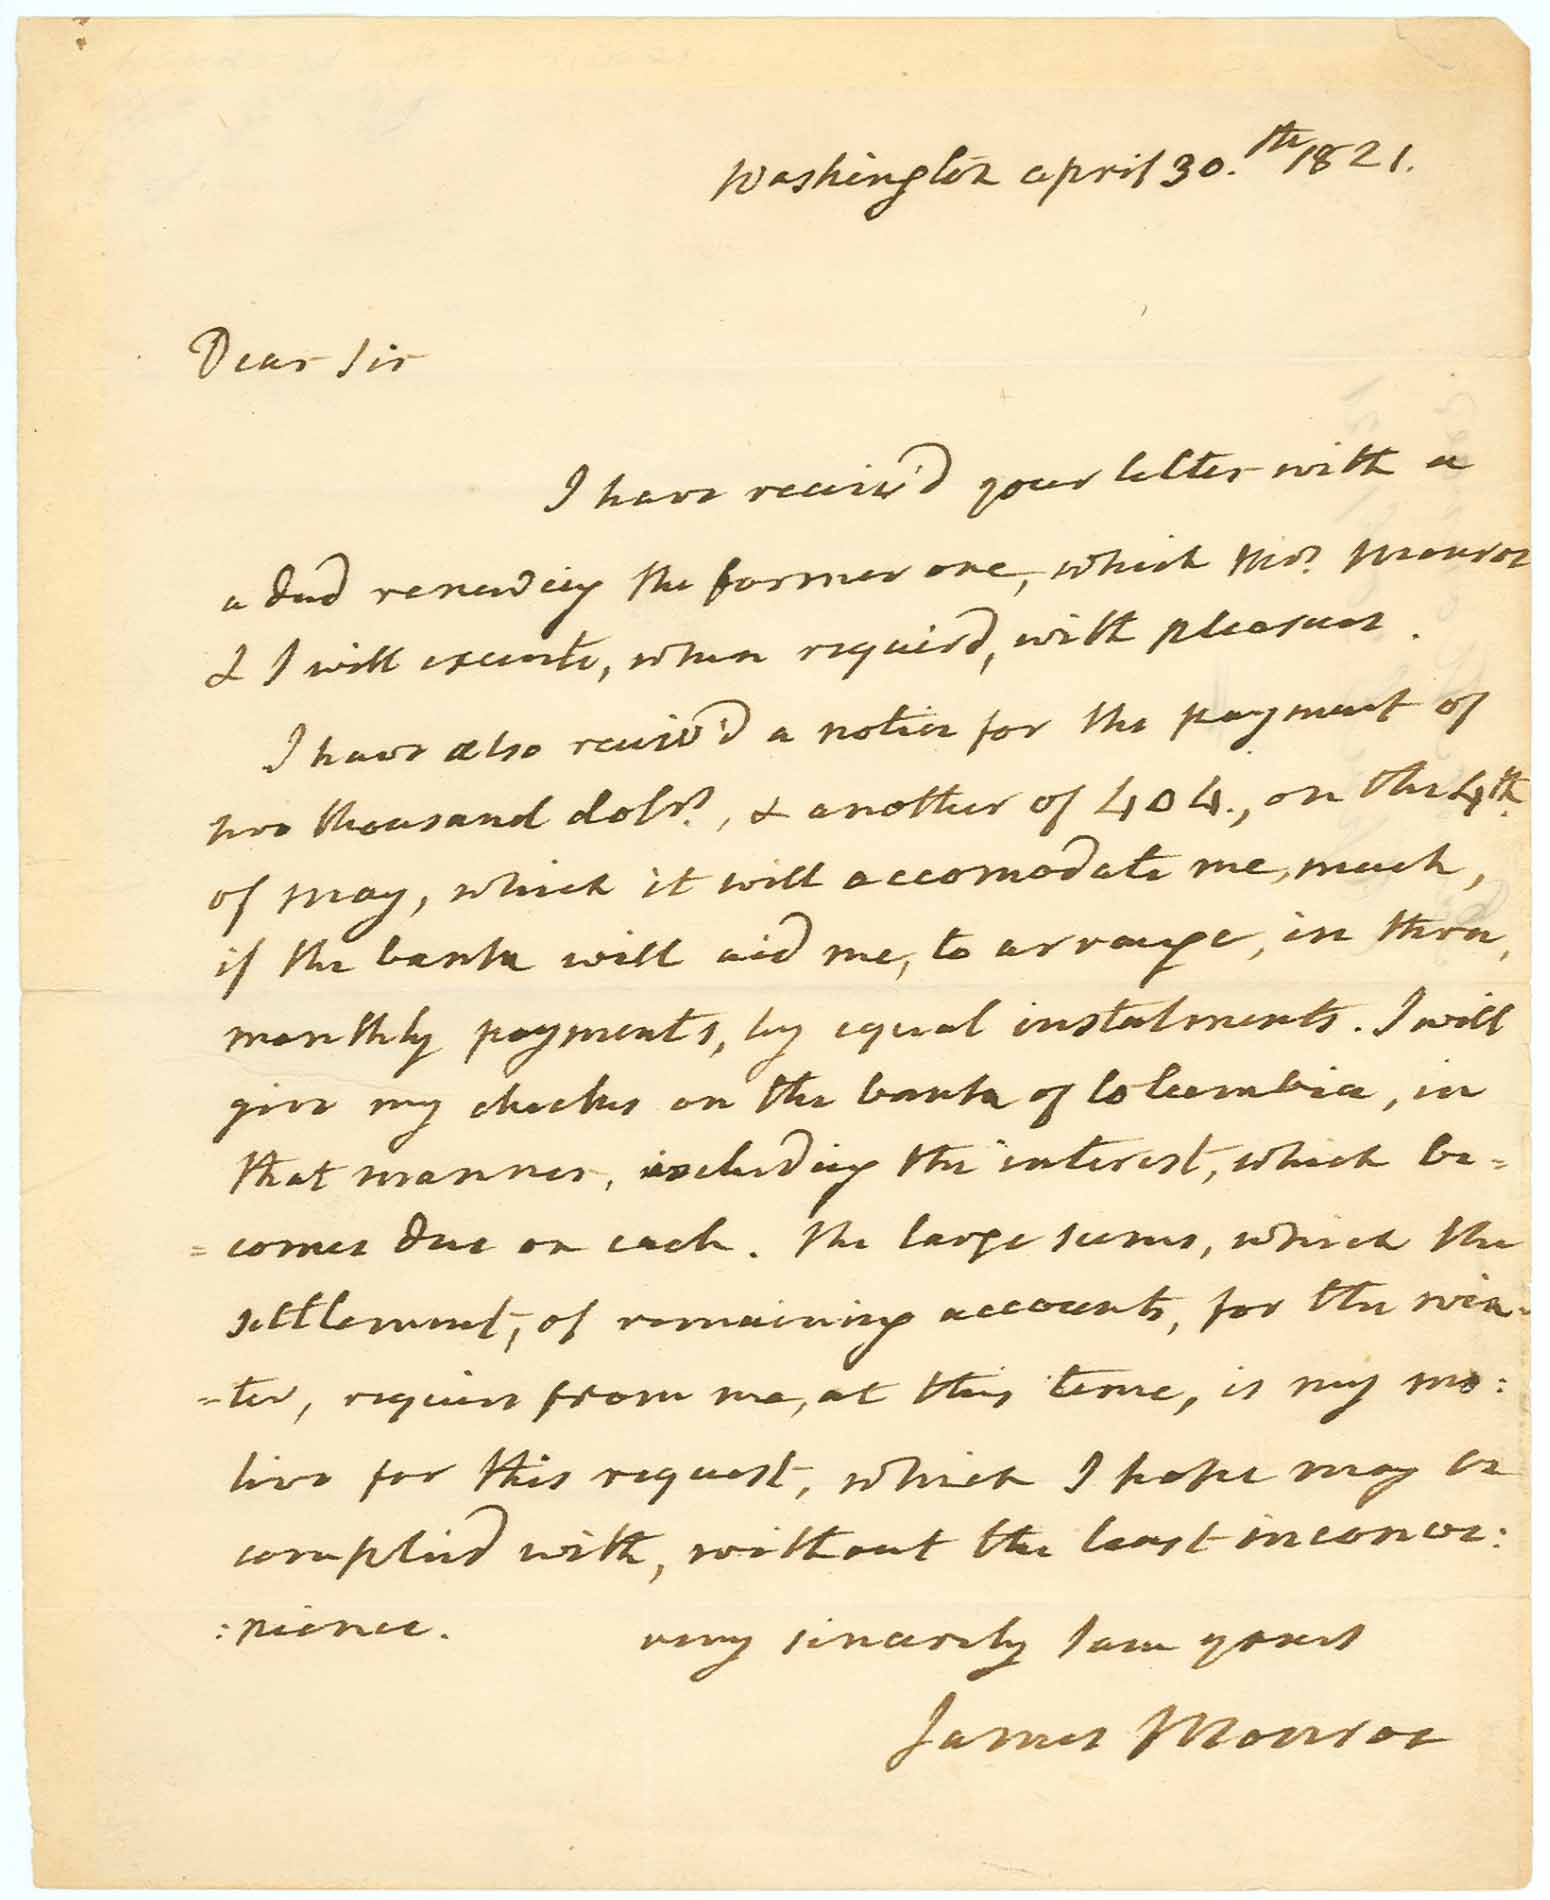 Washington april 30.th 1821.
Dear Sir
I have receiv'd your letter with a
a deed renewing the former one, which Mrs. Monroe
& I will execute, when requird, with pleasure.
I have also receiv'd a notice for the payment of
two thousand dolrs., & another of 404., on the 4th.
of may, which it will accomodate me, much,
if the bank will aid me, to arrange, in three,
monthly payments, by equal instalments. I will
give my checks on the bank of Columbia, in
that manner, including the interest, which be=
=comes due on each. The large sums, which the
settlement, of remaining accounts, for the win=
=ter, require from me, at this time, is my mo:
tive for this request, which I hope may be
complied with, without the least inconve:
:nience. very sincerely I am yours
James Monroe